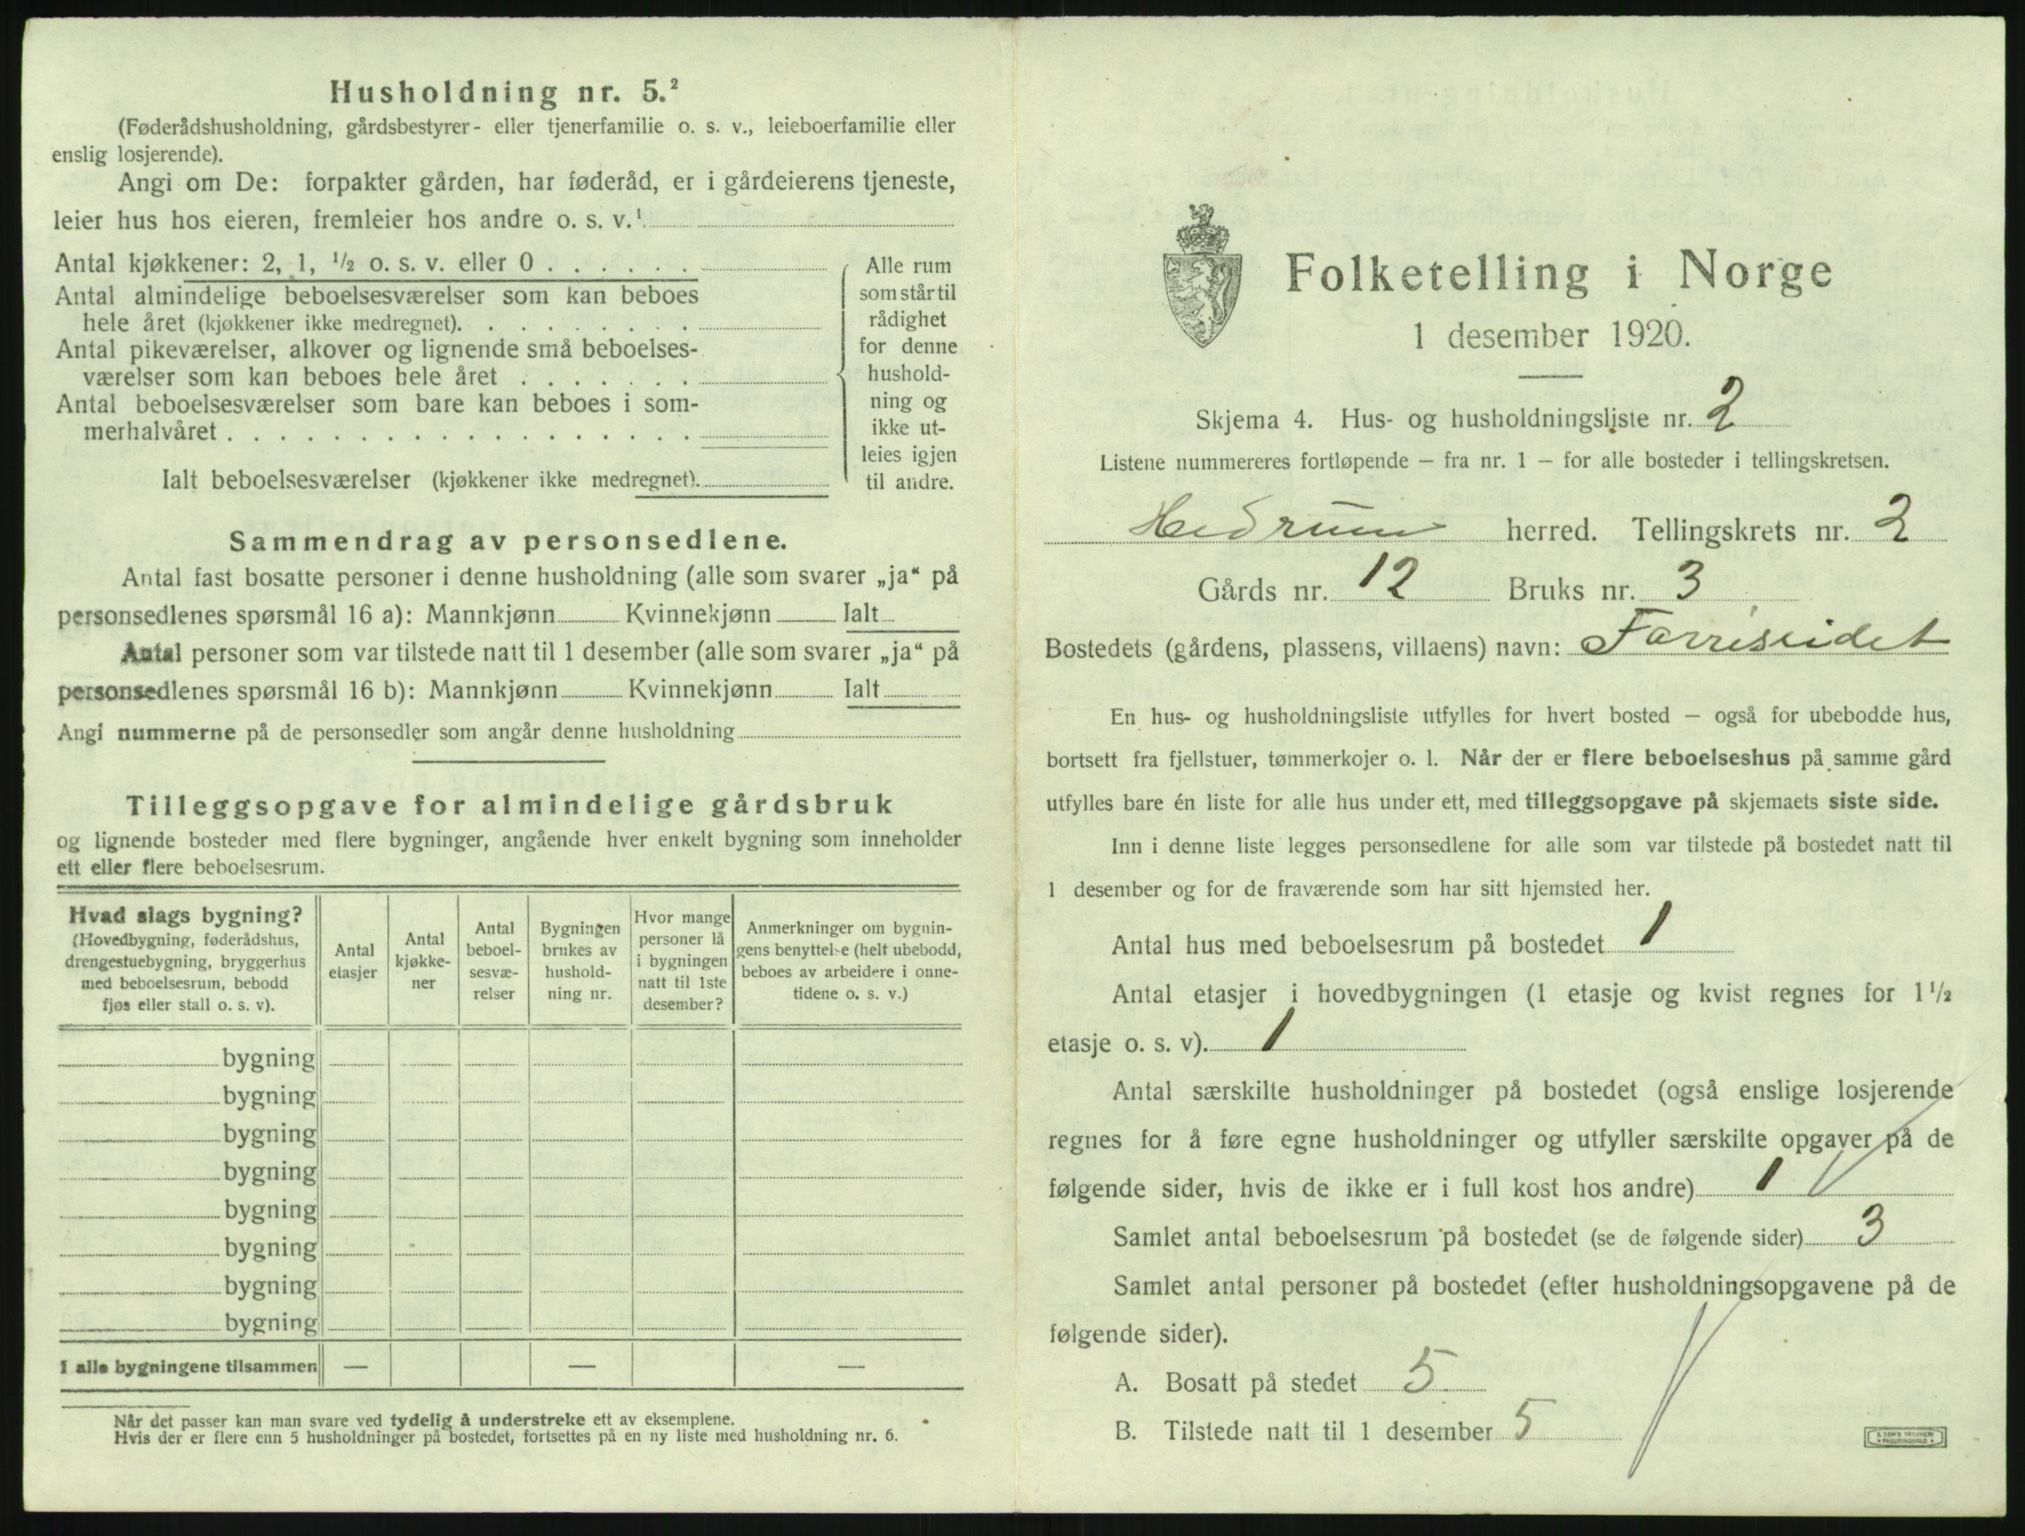 Husholdning nr. 5.²
(Føderådshusholdning, gårdsbestyrer- eller tjenerfamilie o. s. v., leieboerfamilie eller
enslig losjerende).
Angi om De: forpakter gården, har føderåd, er i gårdeierens tjeneste,
leier hus hos eieren, fremleier hos andre o. s. v.¹
Antal kjøkkener: 2, 1, ¹/₂ o. s. v. eller 0 . . . . . .
Antal almindelige beboelsesværelser som kan beboes
hele året (kjøkkener ikke medregnet). . . . . . . . .
Antal pikeværelser, alkover og lignende små beboelses-
værelser som kan beboes hele året . . . . . . .
Antal beboelsesværelser som bare kan beboes i som-
merhalvåret . . . . . . . . . . . . . . . . . .
Ialt beboelsesværelser (kjøkkener ikke medregnet).
Alle rum
som står til
rådighet
for denne
hushold-
ning og
ikke ut-
leies igjen
til andre.
Sammendrag av personsedlene.
Antal fast bosatte personer i denne husholdning (alle som svarer „ja“ på
personsedlenes spørsmål 16 a): Mannkjønn Kvinnekjønn Ialt
Antal personer som var tilstede natt til 1 desember (alle som svarer „ja“ på
personsedlenes spørsmål 16 b): Mannkjønn Kvinnekjønn Ialt
Angi nummerne på de personsedler som angår denne husholdning
Tilleggsopgave for almindelige gårdsbruk
og lignende bosteder med flere bygninger, angående hver enkelt bygning som inneholder
ett eller flere beboelsesrum.
Hvad slags bygning?
(Hovedbygning, føderådshus,
drengestuebygning, bryggerhus
med beboelsesrum, bebodd
fjøs eller stall o. s. v).
Antal
etasjer
Antal
kjøkke-
ner
Antal
beboel-
sesvæ-
relser
Bygningen
brukes av
hushold-
ning nr.
Hvor mange
personer lå
i bygningen
natt til 1ste
desember?
Anmerkninger om bygnin-
gens benyttelse (helt ubebodd,
beboes av arbeidere i onne-
tidene o. s. v.)
bygning
bygning
bygning
bygning
bygning
bygning
bygning
bygning
I alle bygningene tilsammen — — —
Når det passer kan man svare ved tydelig å understreke ett av eksemplene.
Hvis der er flere enn 5 husholdninger på bostedet, fortsettes på en ny liste med husholdning nr. 6.
Folketelling i Norge
1 desember 1920.
Skjema 4. Hus- og husholdningsliste nr. 2
Listene nummereres fortløpende – fra nr. 1 – for alle bosteder i tellingskretsen.
Hedrum herred. Tellingskrets nr. 2
Gårds nr. 12 Bruks nr. 3
Bostedets (gårdens, plassens, villaens) navn: Farriseidet
En hus- og husholdningsliste utfylles for hvert bosted – også for ubebodde hus,
bortsett fra fjellstuer, tømmerkojer o. l. Når der er flere beboelseshus på samme gård
utfylles bare én liste for alle hus under ett, med tilleggsopgave på skjemaets siste side.
Inn i denne liste legges personsedlene for alle som var tilstede på bostedet natt til
1 desember og for de fraværende som har sitt hjemsted her.
Antal hus med beboelsesrum på bostedet 1
Antal etasjer i hovedbygningen (1 etasje og kvist regnes for 1¹/₂
etasje o. s. v). 1
Antal særskilte husholdninger på bostedet (også enslige losjerende
regnes for å føre egne husholdninger og utfyller særskilte opgaver på de
følgende sider, hvis de ikke er i full kost hos andre) 1
Samlet antal beboelsesrum på bostedet (se de følgende sider) 3
Samlet antal personer på bostedet (efter husholdningsopgavene på de
følgende sider).
A. Bosatt på stedet 5
B. Tilstede natt til 1 desember 5